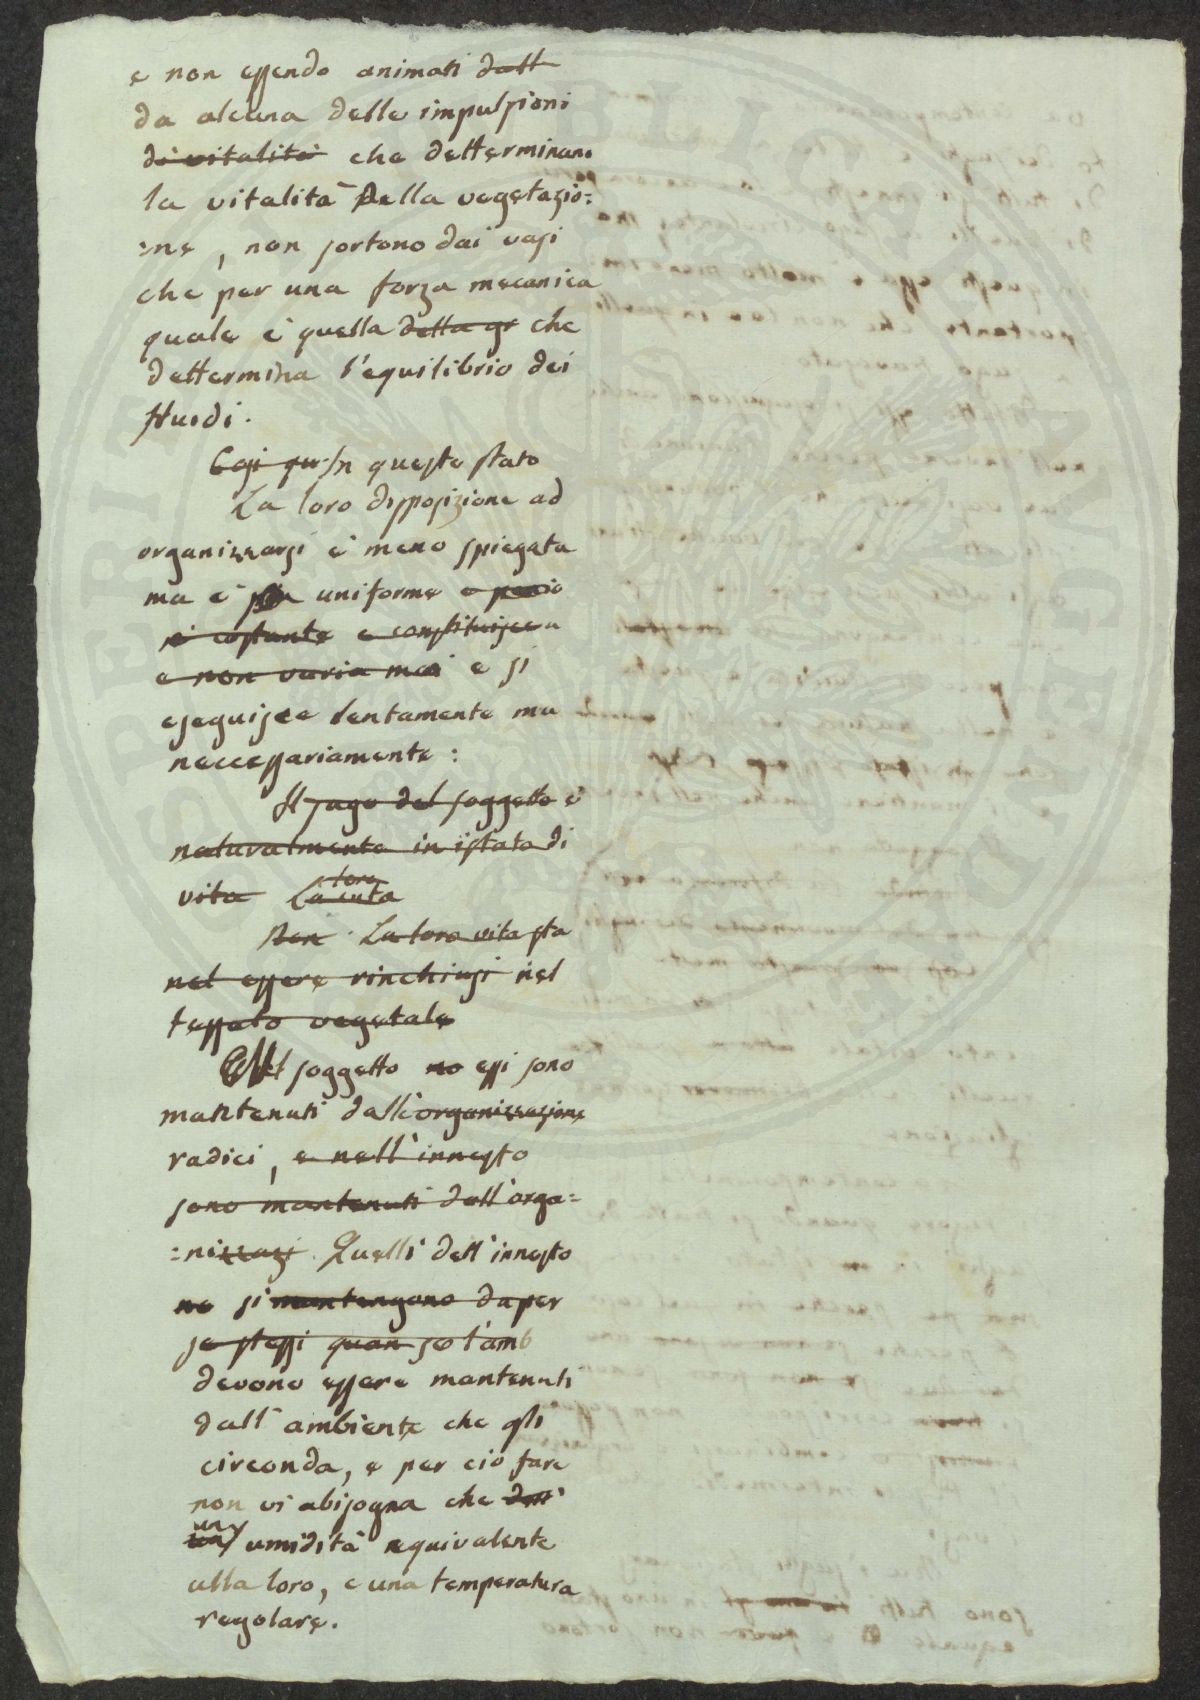 e non essendo animati dall
da alcuna delle impulsioni
di vitalità che dettermınano
la vitalità della vegetazio=
=ne, non sortono dai vasi
che per una forza mecanica
quale è quella della gr che
dettermina l'equilibrio dei
fluidi.
Egi qu In questo stato
La loro disposizione ad
organizzarsi è meno spiegata
ma è più uniforme e perciò
è costante e constituisce
e non varia mai e si
eseguisce lentamente ma
neccessariamente:
Il sugo del soggetto è
naturalmente in istato di
vita La loro vita
Non La loro vita sta
nel essere rinchiusi nel
tessuto vegetale
Nel soggetto no essi sono
mantenuti dall'organizzazione
radici, e nell'innesto
sono mantenuti dall'orga=
=nizzazi. Quelli dell'innesto
no si mantengono da per
se stessi quan se l'amb
devono essere mantenuti
dall'ambiente che gli
circonda, e per ciò fare
non vi abisogna che dell'
una umidità equivalente
alla loro, e una temperatura
regolare.